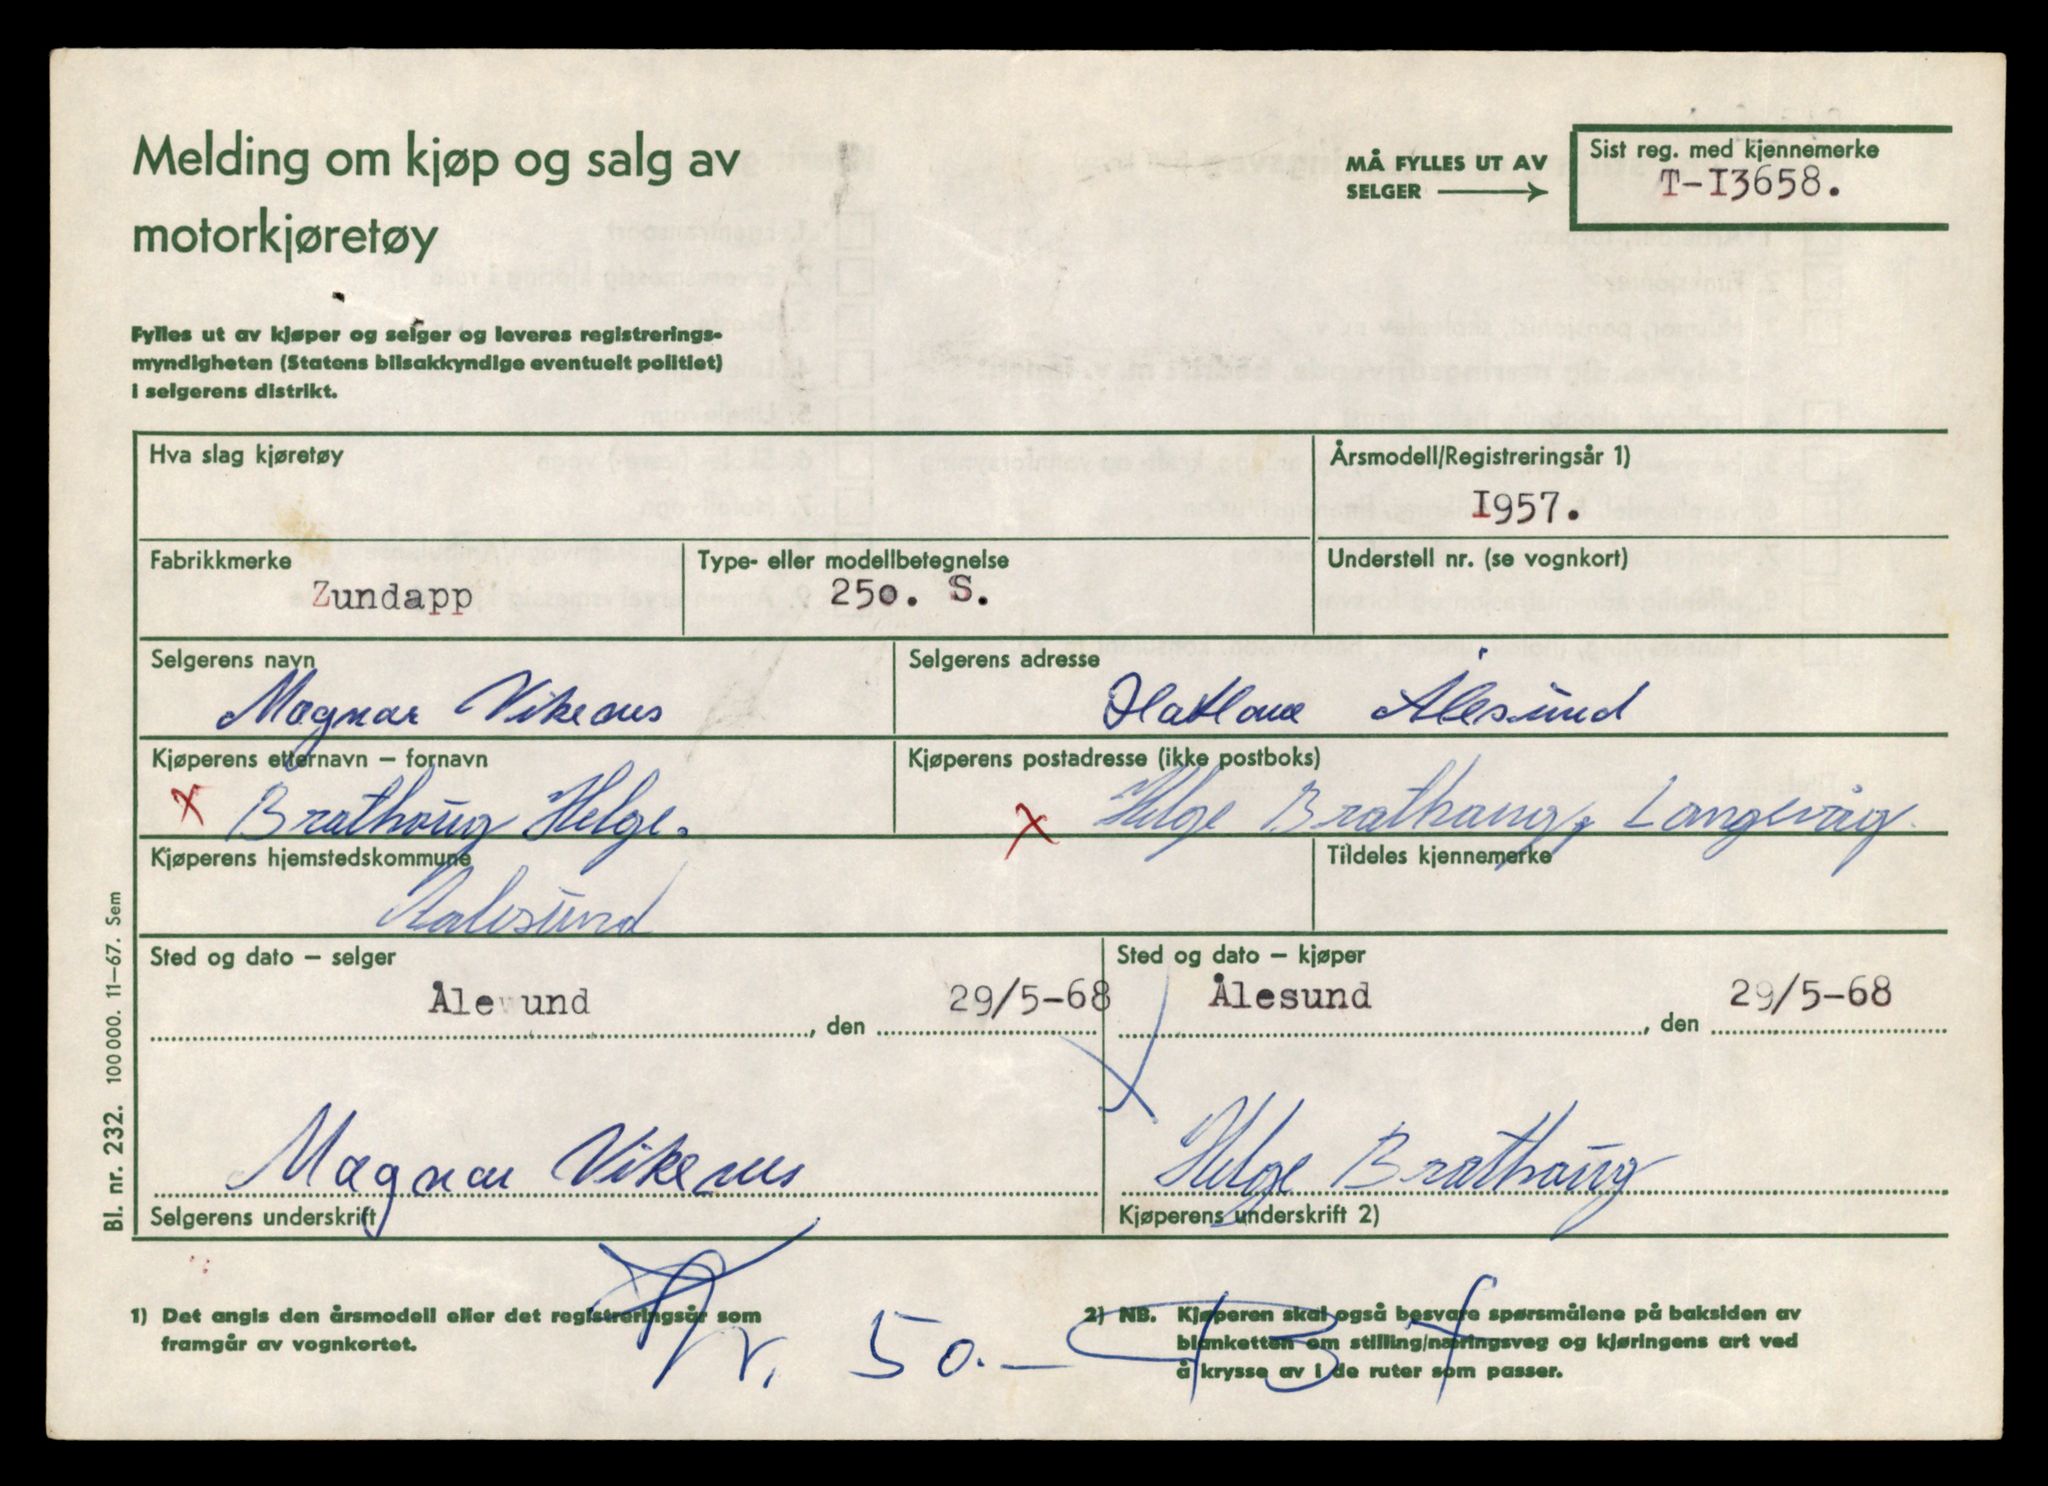 Melding om kjøp og salg av
motorkjøretøy
MÅ FYLLES UT AV
SELGER
Sist reg. med kjennemerke
T-I3658.
Fylles ut av kjøper og selger og leveres registrerings-
myndigheten (Statens bilsakkyndige eventuelt politiet)
i selgerens distrikt.
Hva slag kjøretøy
Årsmodell/Registreringsår 1)
I957.
Fabrikkmerke
Zundapp
Type- eller modellbetegnelse
250. S.
Understell nr. (se vognkort)
Selgerens navn
Magnar Vikenes
Selgerens adresse
Hatlane Ålesund
Kjøperens etternavn – fornavn
x Brathaug Helge.
Kjøperens postadresse (ikke postboks)
x Helge Brathaug, Langevåg.
Kjøperens hjemstedskommune
Aalesund
Tildeles kjennemerke
Sted og dato – selger
Åle und , den 29/5-68
Sted og dato – kjøper
Ålesund , den 29/5-68
Magnar Vikenes
Selgerens underskrift
Helge Brathaug
Kjøperens underskrift 2)
1) Det angis den årsmodell eller det registreringsår som
framgår av vognkortet.
2) NB. Kjøperen skal også besvare spørsmålene på baksiden av
blanketten om stilling/næringsveg og kjøringens art ved
å krysse av i de ruter som passer.
Kr. 50.-
Bl. nr. 232. 100 000. 11–67. Sem